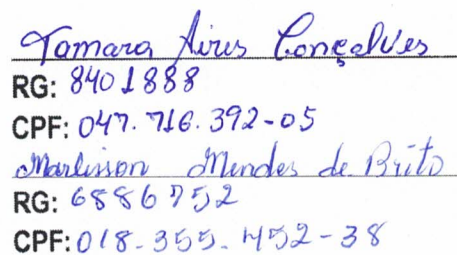 Tamara Aires Conçalves
RG: 8401888
CPF: 047.716.392-05
Marlisson Mendes de Brito
RG: 6886752
CPF: 018-355-452-38